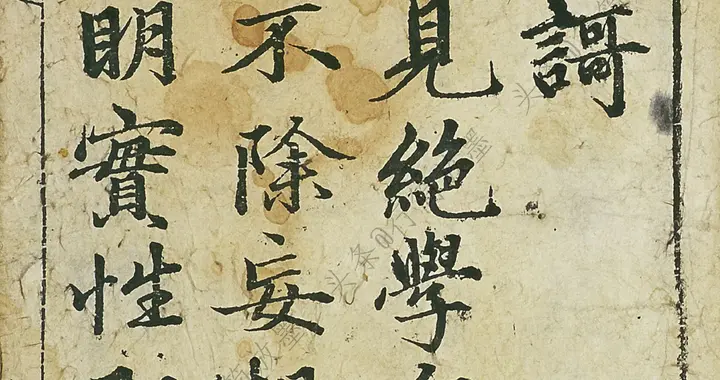 謌
見絕學
不除妄
明實性